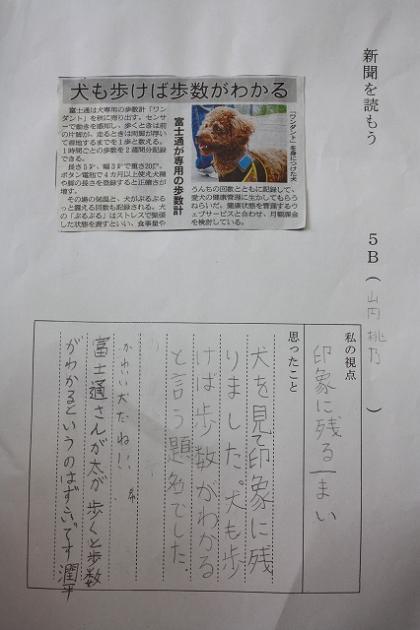 新聞を読もう
5B(山内桃乃)
犬も歩けば歩数がわかる
富士通が専用の歩数計
「ワンダント」を身につけた犬
富士通は犬専用の歩数計「ワン
ダント」を秋に売り出す。センサ
ーで動きを感知し、歩くときは前
の片脚が、走るときは両脚が浮い
て着地するまでを1歩と数える。
1時間ごとの歩数を2週間分記録
できる。
ボタン電池で4カ月以上使え犬種
や脚の長さを登録すると正確さが
増す。
その場の気温と、犬がぶるぶる
っと震える回数も記録される。犬
の「ぶるぶる」はストレスで緊張
した状態を表すといい、食事量や
うんちの回数とともに記録して、
愛犬の健康管理に生かしてもらう
ねらいだ。健康状態を管理するウ
ェブサービスと合わせ、月額課金
を検討している。
私の視点
印象に残る一まい
思ったこと
犬を見て印象に残
りました。犬も歩
けば歩数がわかる
と言う題名でした。
かわいい犬だね!!
富士通さんが太が歩くと歩数
がわかるというのはすごいです 潤平